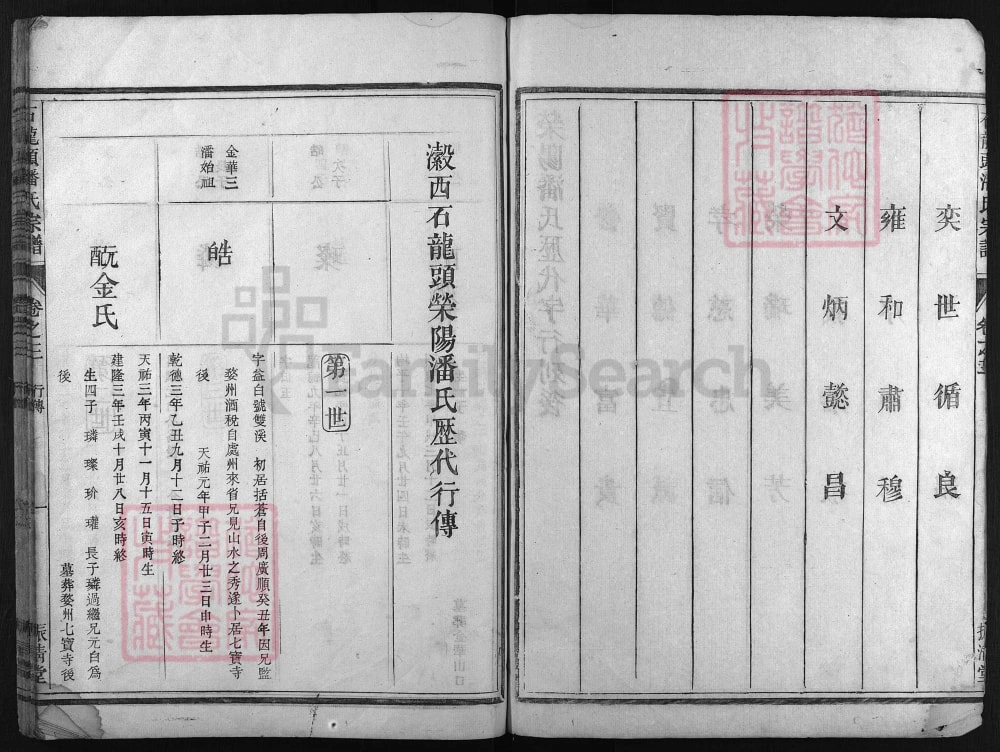 奕世循良
雍和肅穆
文炳懿昌
石龍頭潘氏宗譜
瀫西石龍頭榮陽潘氏歷代行傳
第一世
金華三
潘始祖
皓
字益白號雙溪 初居括蒼自後周廣順癸丑年因兄監
婺州酒稅自處州來省兄見山水之秀遂卜居七寶寺
後 天祐元年甲子二月廿三日申時生
乾德三年乙丑九月十二日子時終
配金氏
天祐三年丙寅十一月十五日寅時生
建隆三年壬戌十月廿八日亥時終
生四子 璘 璨 玠 瓘 長子璘過繼兄元白為
後 墓葬婺州七寶寺後
石龍頭潘氏宗譜 卷之二 行傳 一
FamilySearch